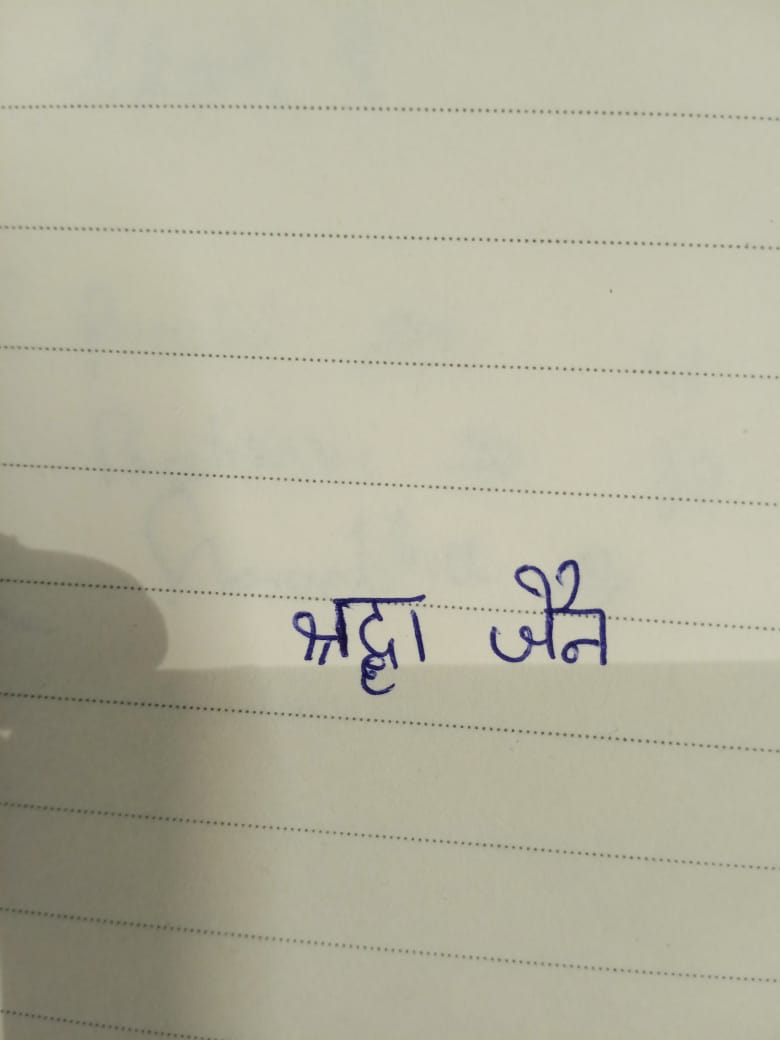 श्रद्धा जैन